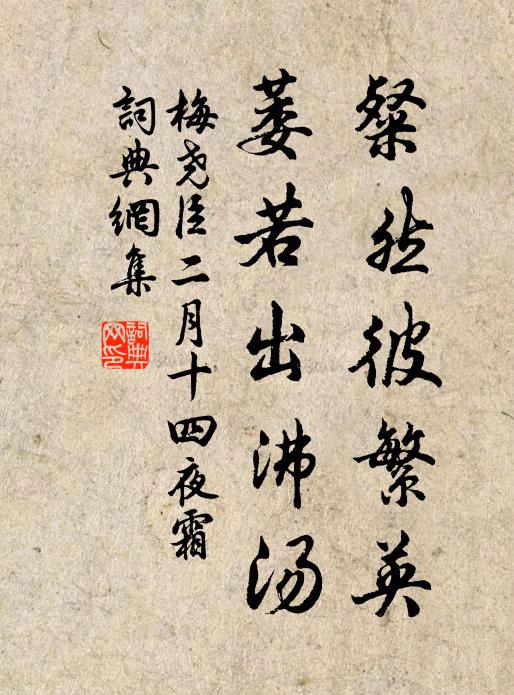 粲然彼繁英
萎若出沸汤
梅尧臣二月十四夜霜
詞典網集
詞典网印